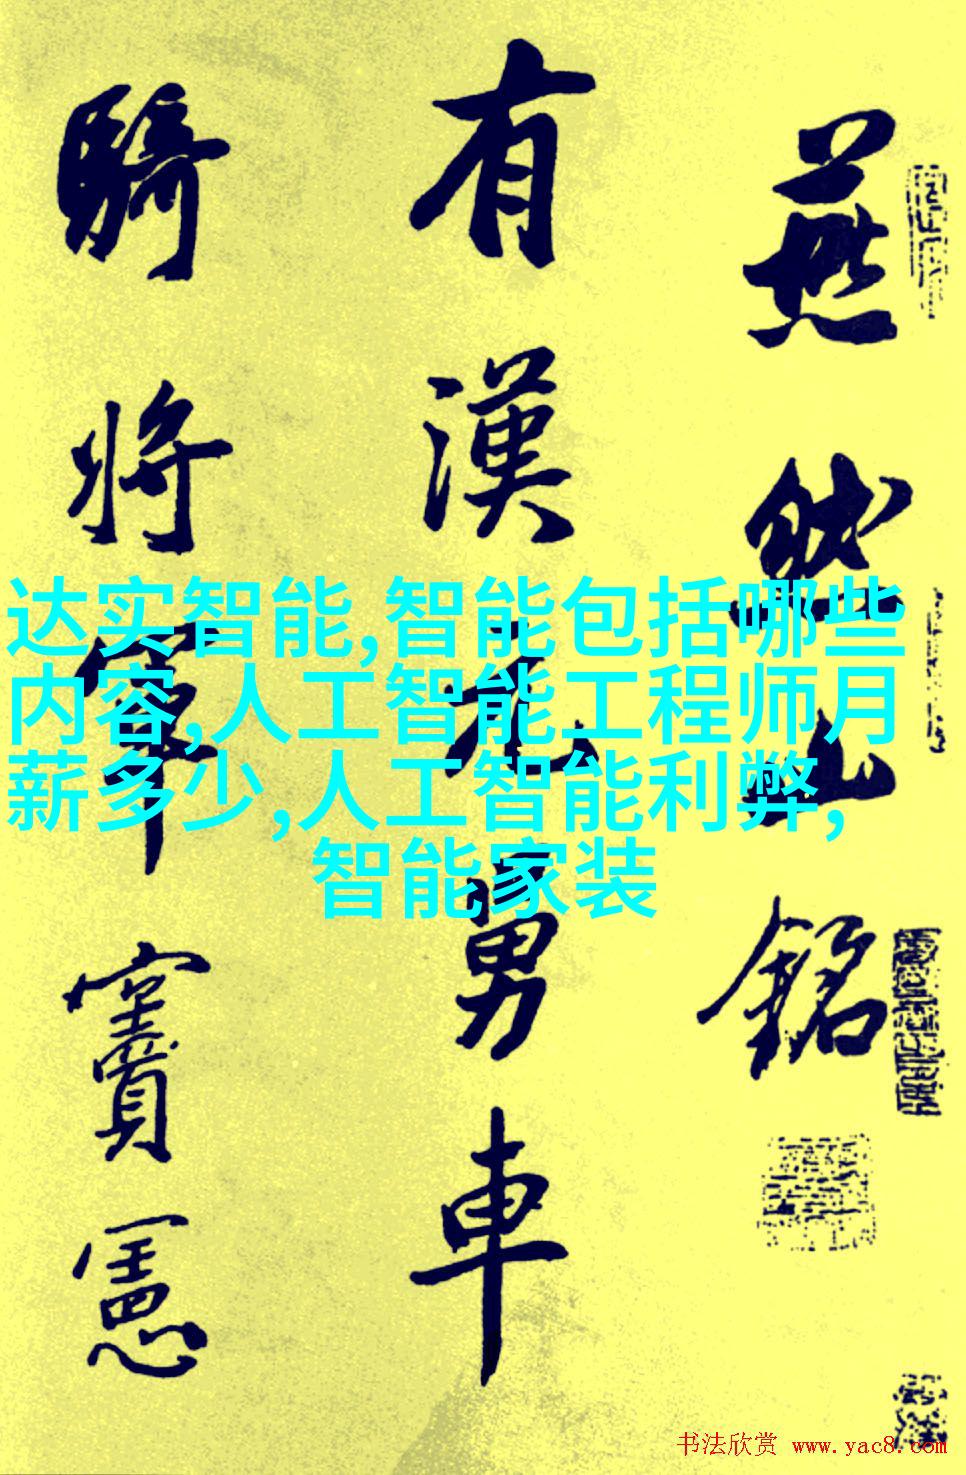 燕然山銘
有漢元舅車
騎將軍竇憲
达实智能,智能包括哪些
内容,人工智能工程师月
薪多少,人工智能利弊,
智能家装
书法欣赏 www.yac8.com